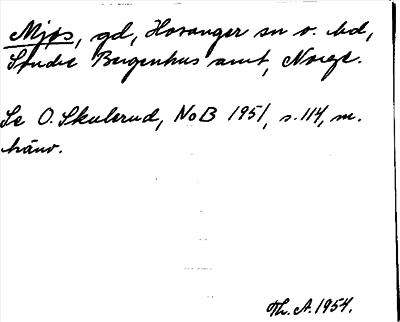 Mjøs, gd, Hosanger sn o. hd,
Søndre Bergenhus amt, Norge.
Se O. Skulerud, NoB 1951, s. 114, m.
hänv.
Th. A. 1954.